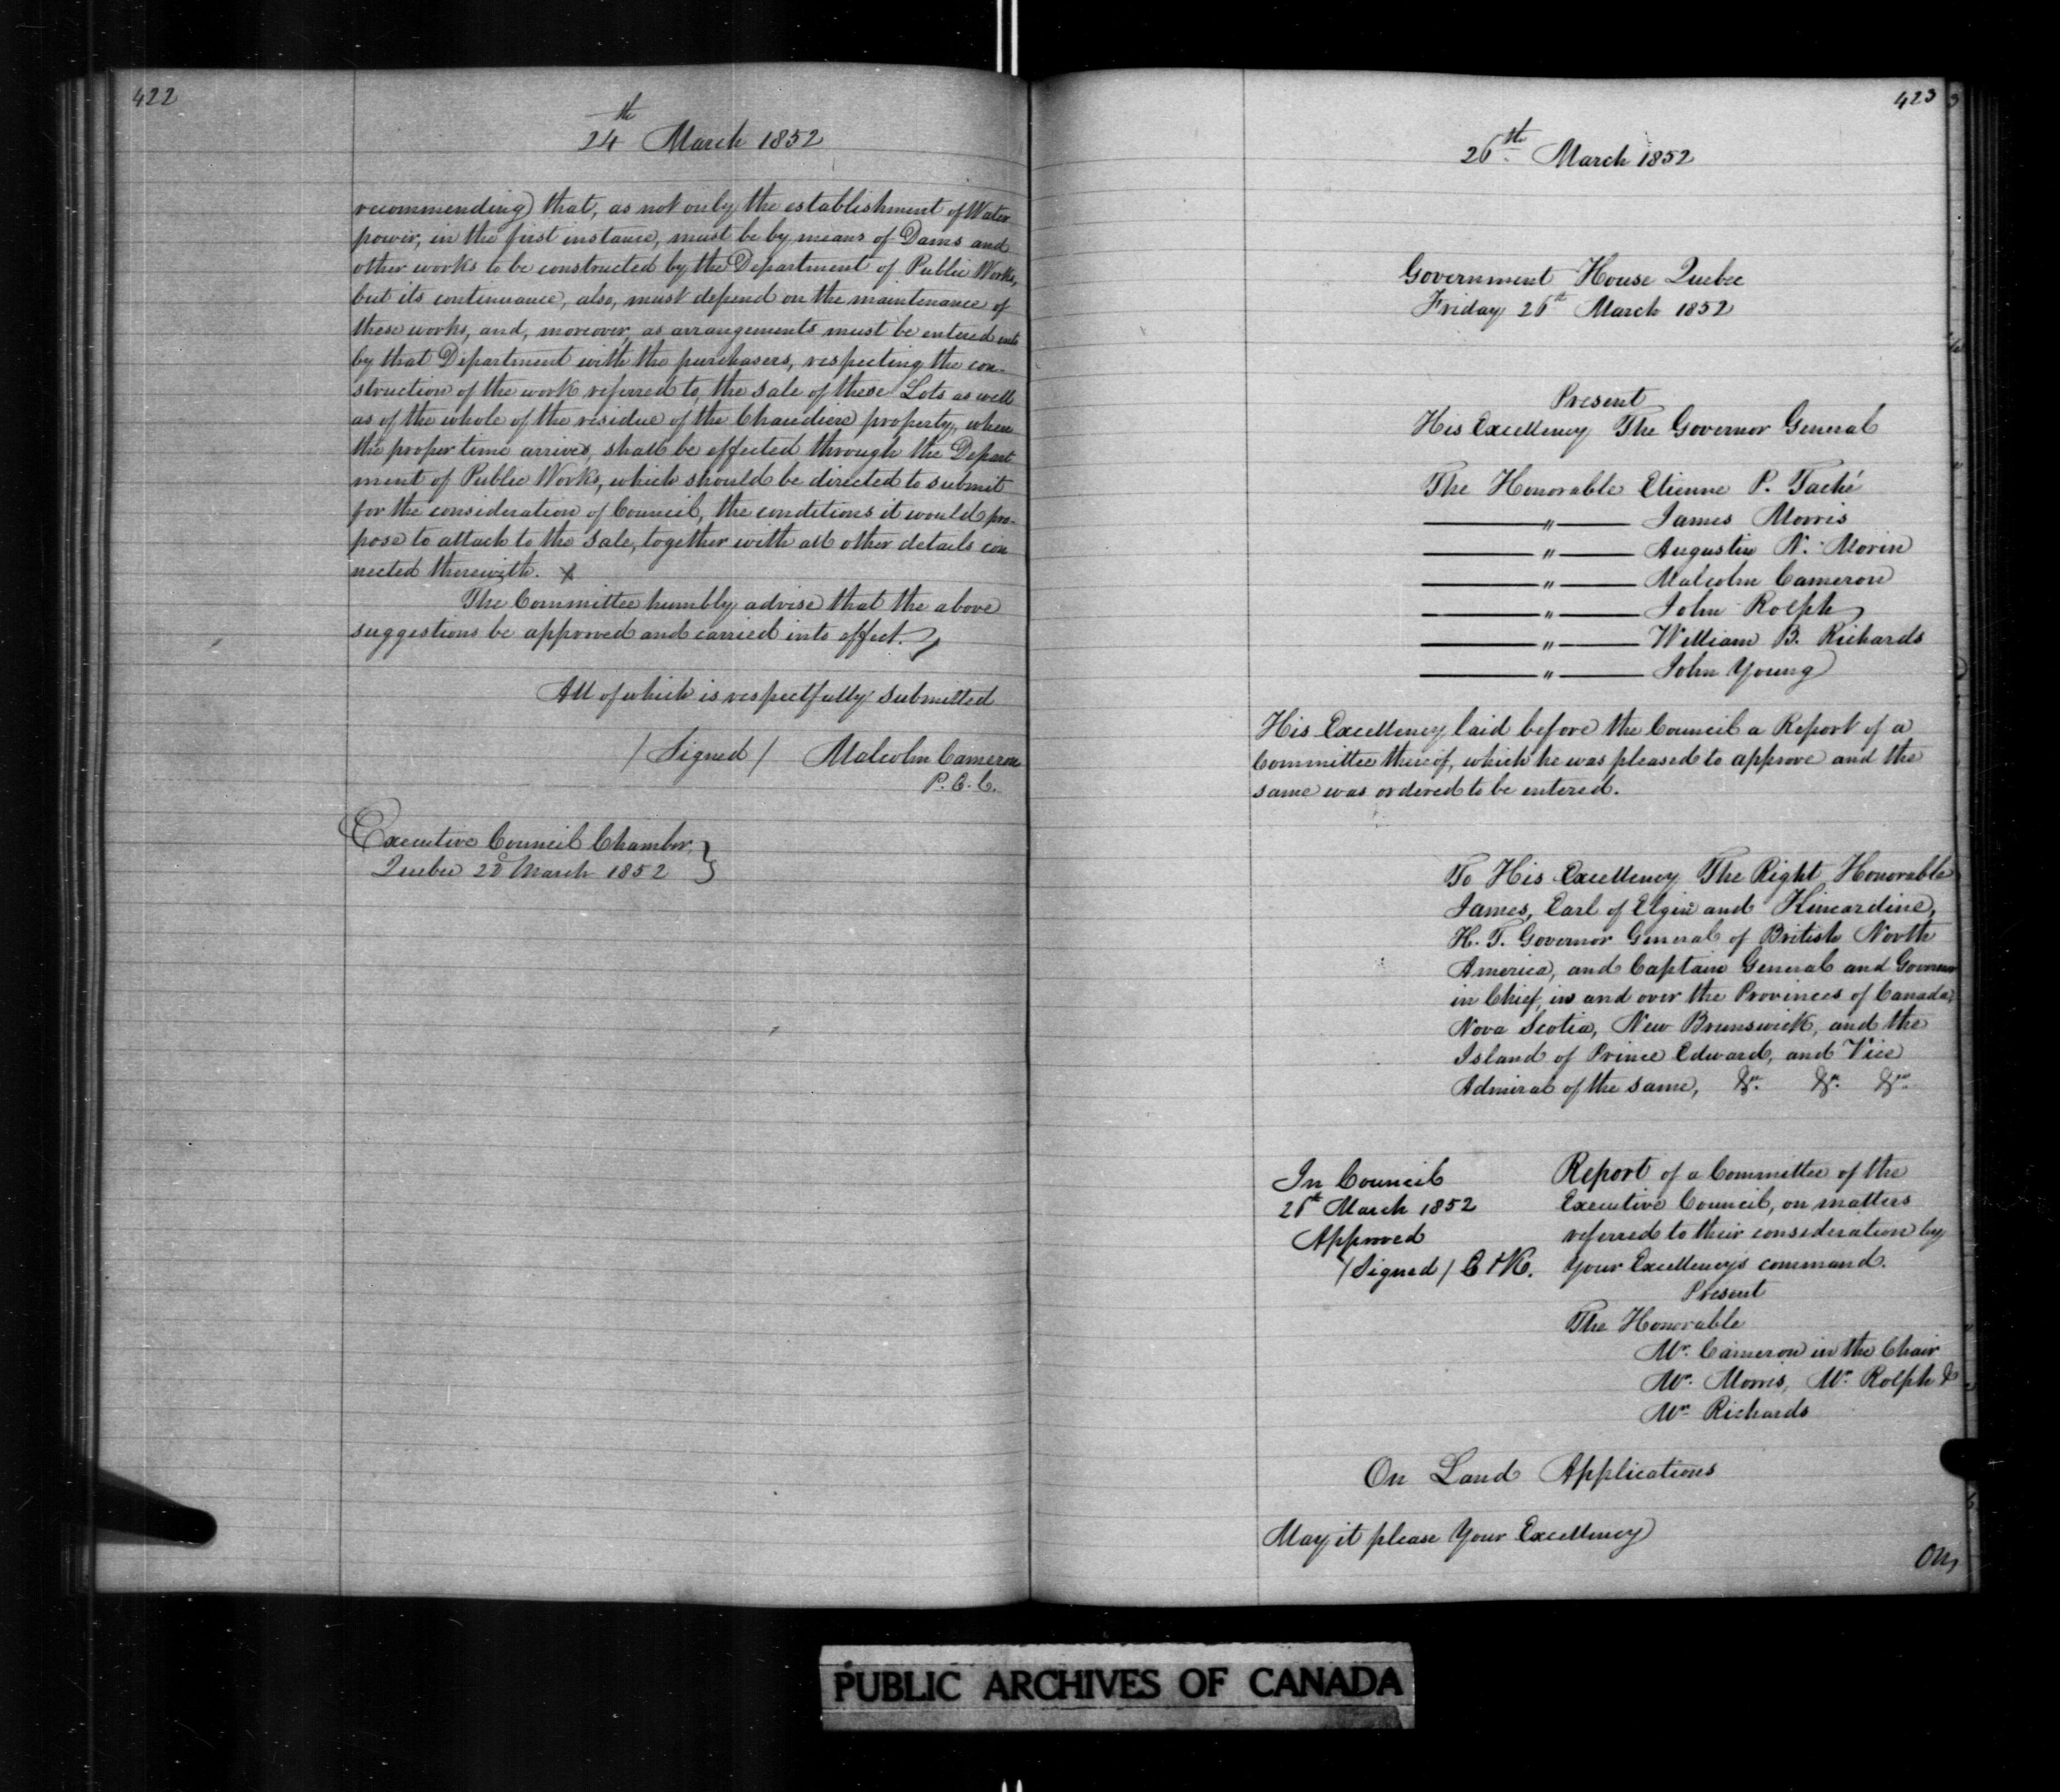 422
24th March 1852
recommending) that, as not only the establishment of Water
power, in the first instance, must be by means of Dams and
other works to be constructed by the Department of Public Works,
but its continuance, also, must depend on the maintenance of
these works, and, moreover, as arrangements must be entered into
by that Department with the purchasers, respecting the con-
struction of the work referred to, the sale of these Lots as well
as of the whole of the residue of the Chaudiere property, when
the proper time arrives, shall be effected through the Depart
ment of Public Works, which should be directed to submit
for the consideration of Council, the conditions it would pro-
pose to attach to the sale, together with all other details con
nected therewith. x
The Committee humbly advise that the above
suggestions be approved and carried into effect.
All of which is respectfully submitted
/ Signed / Malcolm Cameron
P. C. C.
Executive Council Chamber,
Quebec March 1852 }
423
26th March 1852
Government House Quebec
Friday 26th March 1852
Present
His Excellency The Governor General
The Honorable Etienne P. Taché
" James Morris
" Augustin N. Morin
" Malcolm Cameron
" John Rolph
" William B. Richards
" John Young
His Excellency laid before the Council a Report of a
Committee thereof, which he was pleased to approve and the
same was ordered to be entered.
To His Excellency The Right Honorable
James, Earl of Elgin and Kincardine,
K. T. Governor General of British North
America, and Captain General and Governor
in Chief, in and over the Provinces of Canada,
Nova Scotia, New Brunswick, and the
Island of Prince Edward, and Vice
Admiral of the same, &c. &c. &c.
In Council
26th March 1852
Approved
/ Signed / E & K.
Report of a Committee of the
Executive Council, on matters
referred to their consideration by
Your Excellency's command.
Present
The Honorable
Mr. Cameron in the Chair
Mr. Morris, Mr. Rolph &
Mr. Richards
On Land Applications
May it please Your Excellency
On,
PUBLIC ARCHIVES OF CANADA